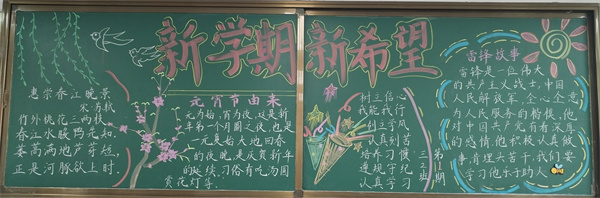 新学期 新希望
惠崇春江晚景
宋·苏轼
竹外桃花三两枝,
春江水暖鸭先知。
蒌蒿满地芦芽短,
正是河豚欲上时。
元宵节由来
元为始,宵为夜,这是新
年第一个月圆之夜,也是
一元复始大地回春
的夜晚,是庆贺新年
的延续,习俗有吃汤圆
赏花灯等。
树立信心
我能我行
树立学风
认真刻苦
培养习惯
遵规守纪
认真学习
第1期
三1班
雷锋故事
雷锋是一位伟大
的共产主义战士,中国人
民解放军,全心全意
为人民服务的楷模,他
对中国共产党有着深厚
的感情,他积极认真做
事,肯埋头苦干,我们要
学习他乐于助人。